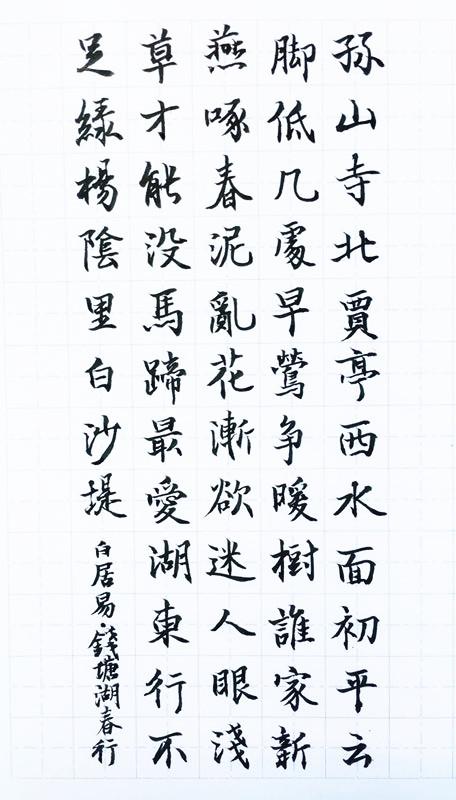 孤山寺北賈亭西水面初平云
脚低几處早鶯争暖樹誰家新
燕啄春泥亂花漸欲迷人眼淺
草才能没馬蹄最愛湖東行不
足緑楊陰里白沙堤 白居易·錢塘湖春行